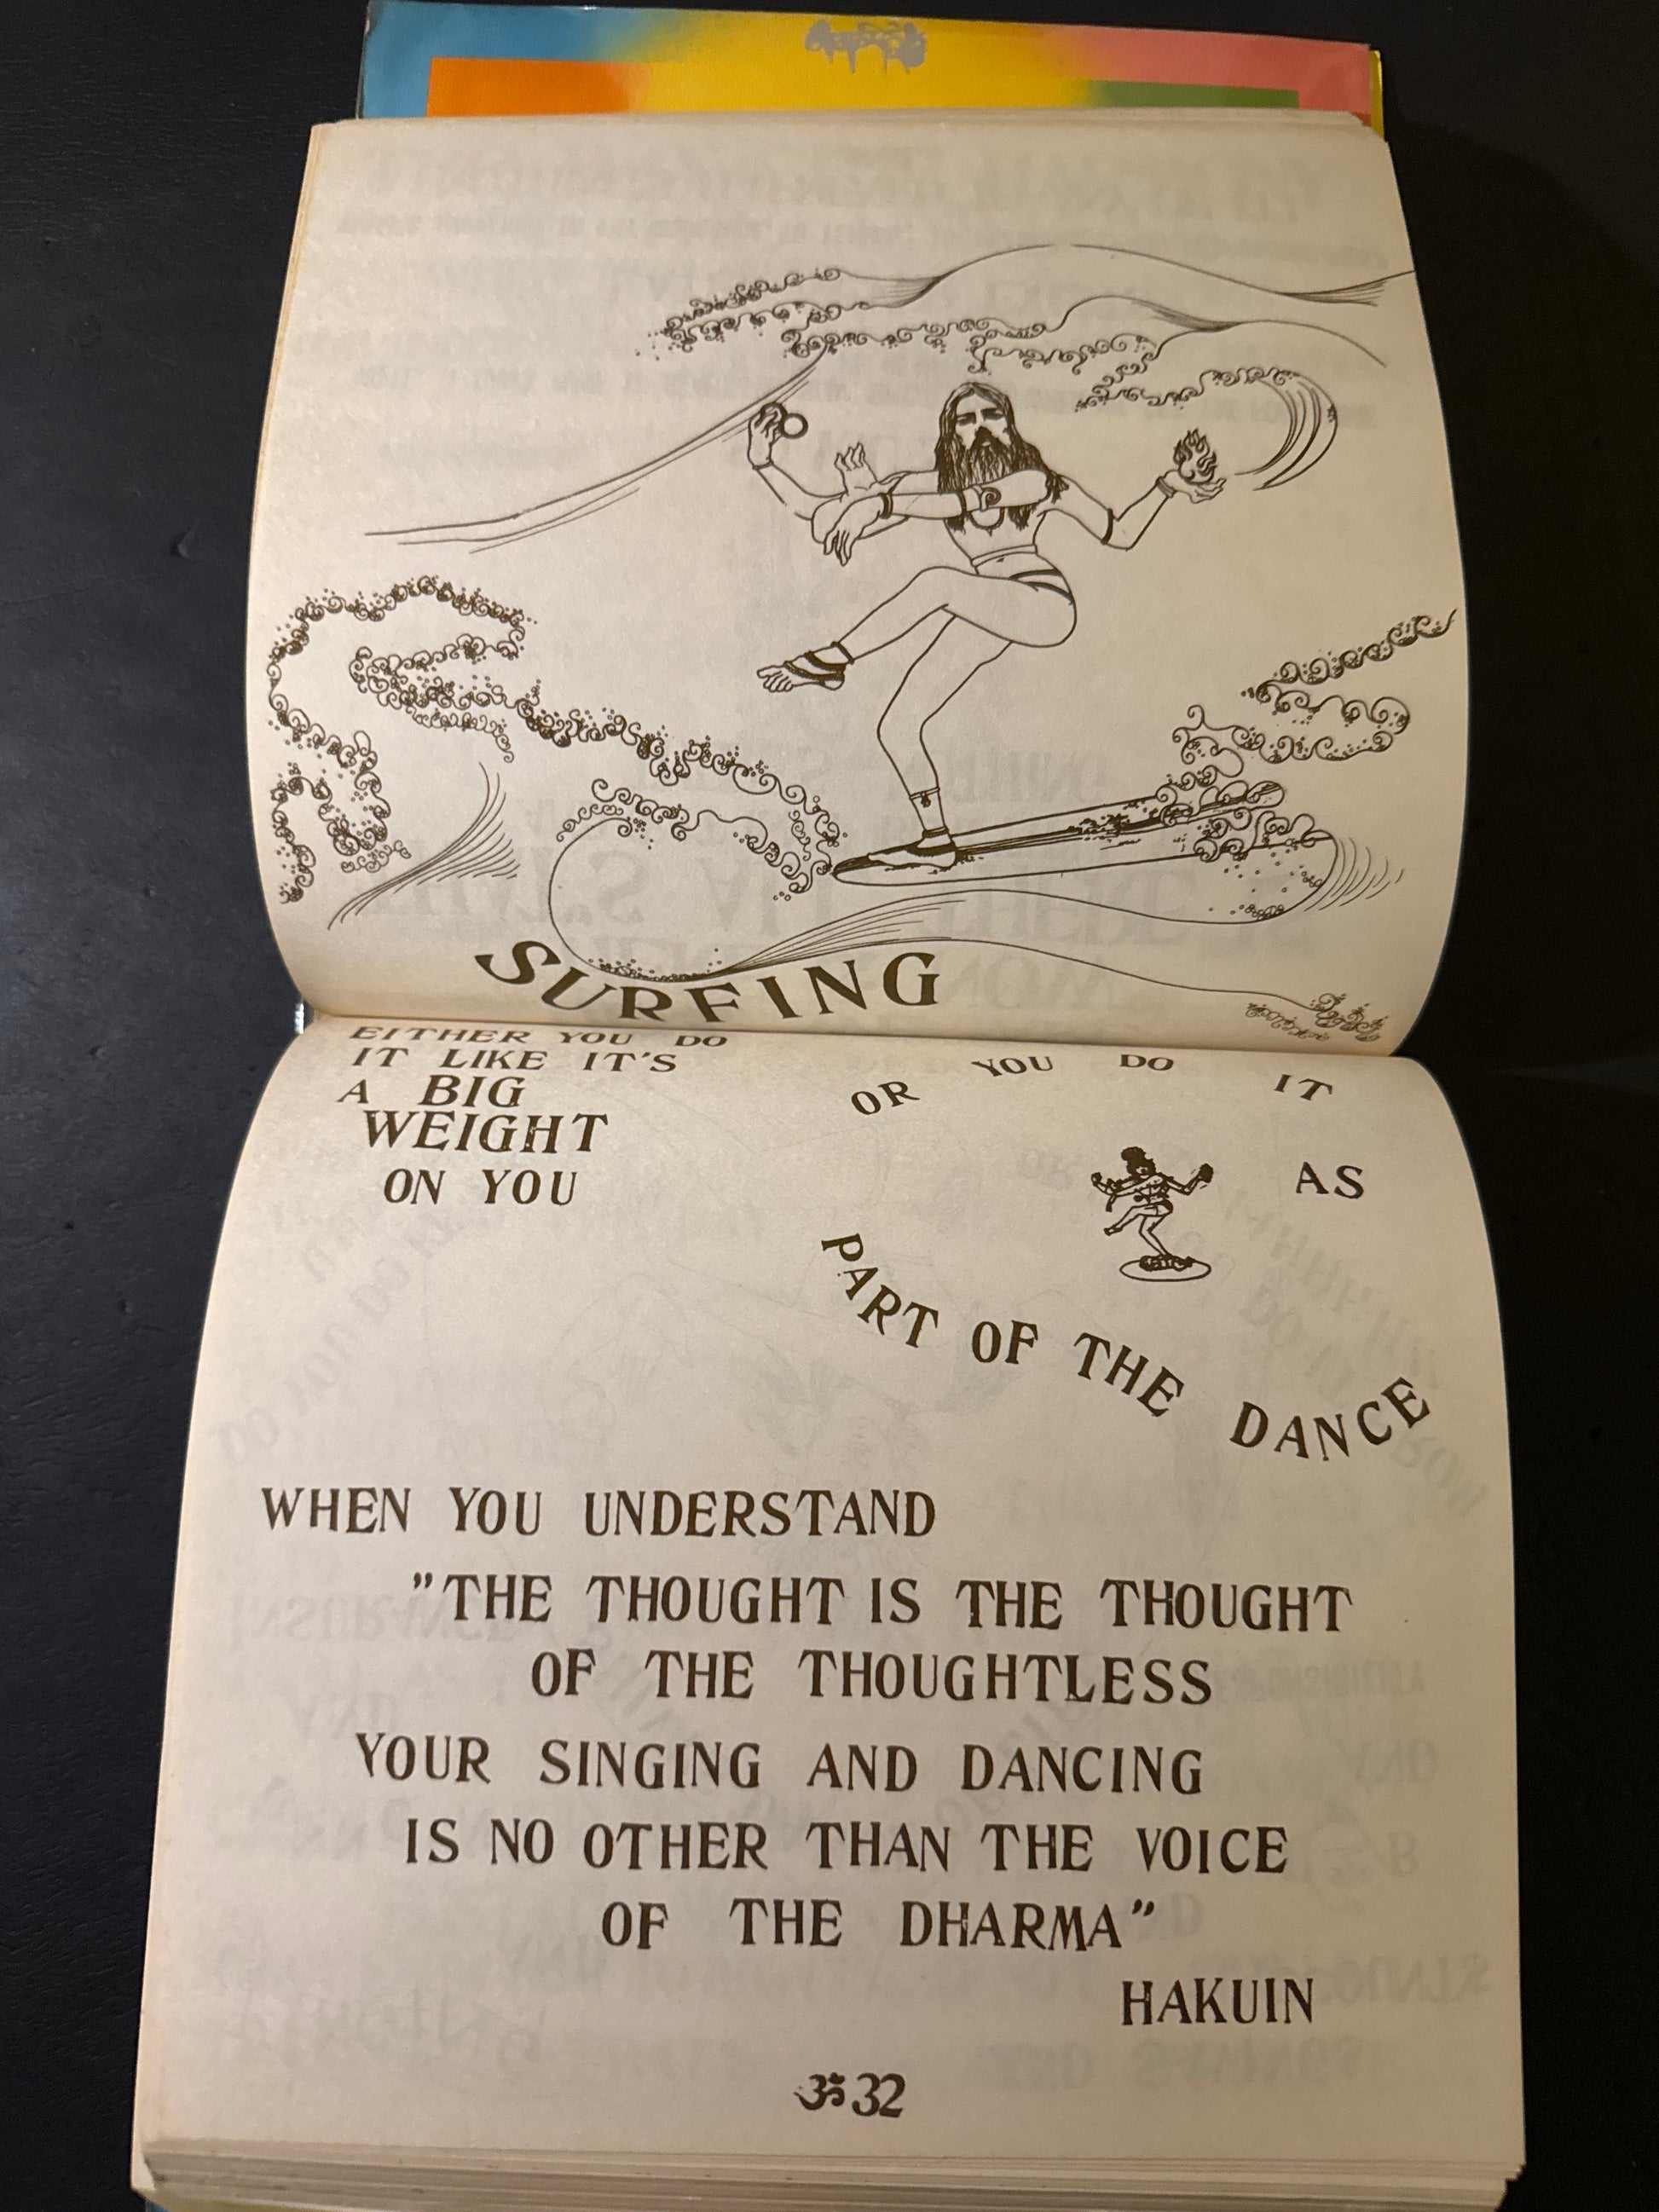 SURFING
EITHER YOU DO
IT LIKE IT'S
A BIG
WEIGHT
ON YOU
OR YOU DO IT
AS
PART OF THE DANCE
WHEN YOU UNDERSTAND
"THE THOUGHT IS THE THOUGHT
OF THE THOUGHTLESS
YOUR SINGING AND DANCING
IS NO OTHER THAN THE VOICE
OF THE DHARMA"
HAKUIN
ॐ 32